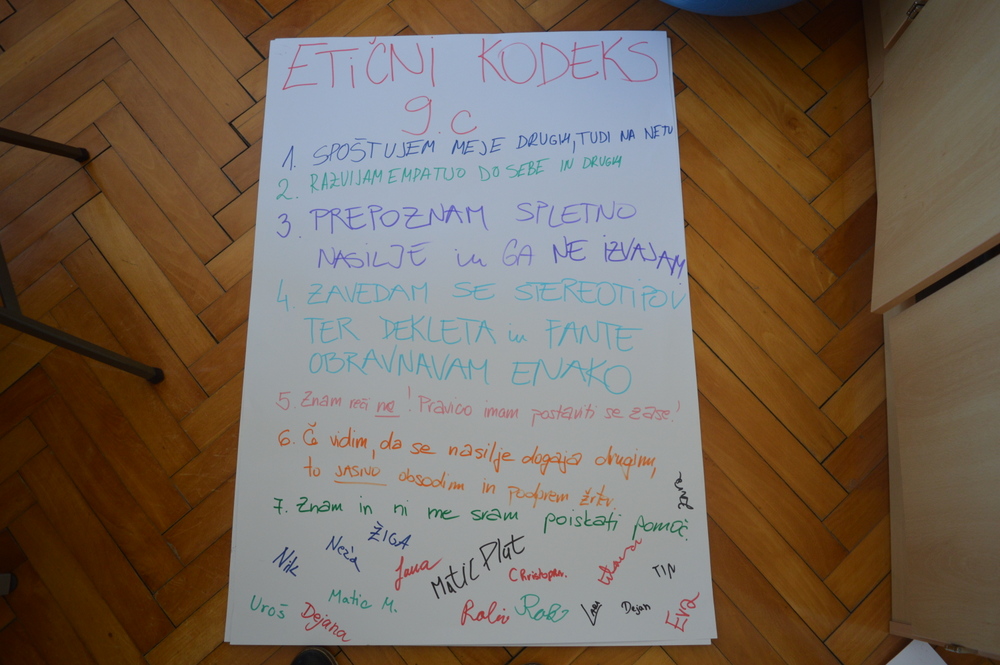 ETIČNI KODEKS
9.c
1. SPOŠTUJEM MEJE DRUGIH, TUDI NA NETU
2. RAZVIJAM EMPATIJO DO SEBE IN DRUGIH
3. PREPOZNAM SPLETNO
NASILJE in GA NE IZVAJAM
4. ZAVEDAM SE STEREOTIPOV
TER DEKLETA in FANTE
OBRAVNAVAM ENAKO
5. Znam reči ne! Pravico imam postaviti se zase!
6. Če vidim, da se nasilje dogaja drugim,
to JASNO obsodim in podprem žrtev.
7. Znam in ni me sram poiskati pomoč.
Nik Neža ŽIGA Jana Matic Plut Christopher. TIN
Uroš Dejana Matic M. Rok Dejan Eva